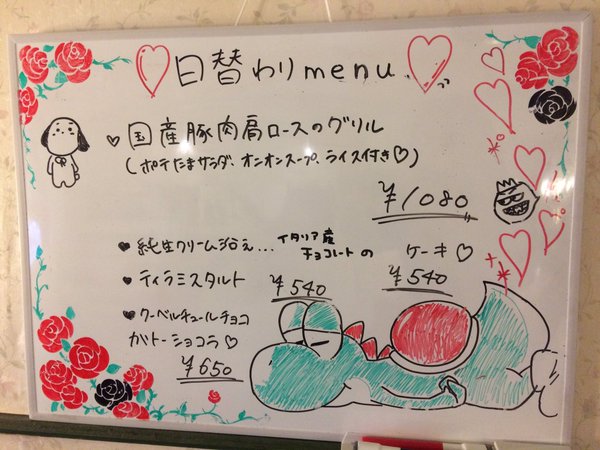 日替わりmenu
国産豚肉肩ロースのグリル
(ポテたまサラダ、オニオンスープ、ライス付き♡)
¥1080
純生クリーム添え... イタリア産チョコレートの ケーキ♡
¥540
ティラミスタルト ¥540
クーベルチュールチョコ
ガトーショコラ♡
¥650